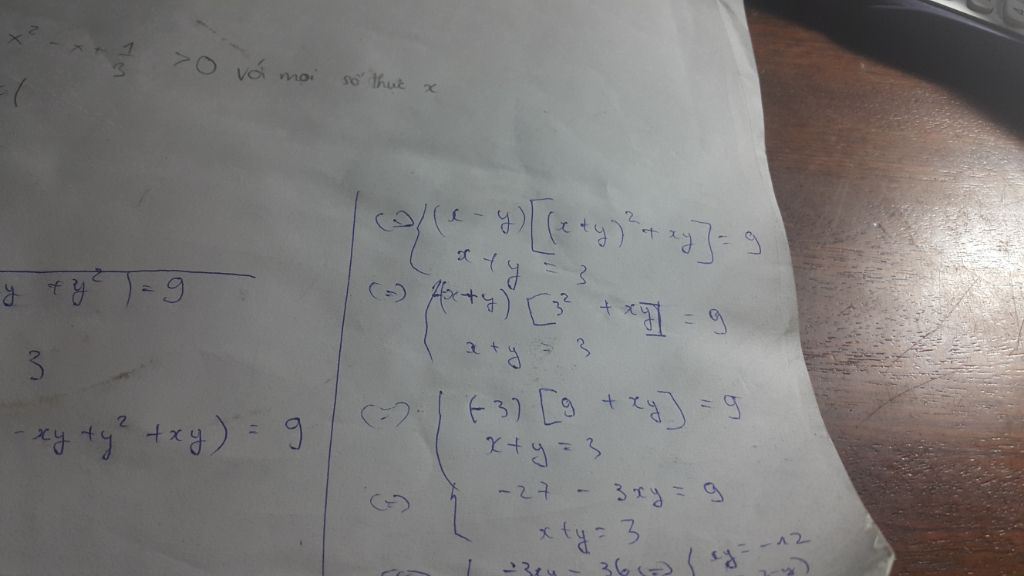 x² - x + 1/3 > 0 với mọi số thực x
y + y² ) = 9
3
- xy + y² + xy ) = 9
(=) { (x - y) [(x + y)² + xy] = 9
x + y = 3
(=) { -(x + y) [3² + xy] = 9
x + y = 3
(=) { (-3) [9 + xy] = 9
x + y = 3
(=) { -27 - 3xy = 9
x + y = 3
-3xy = 36 (=) { xy = -12